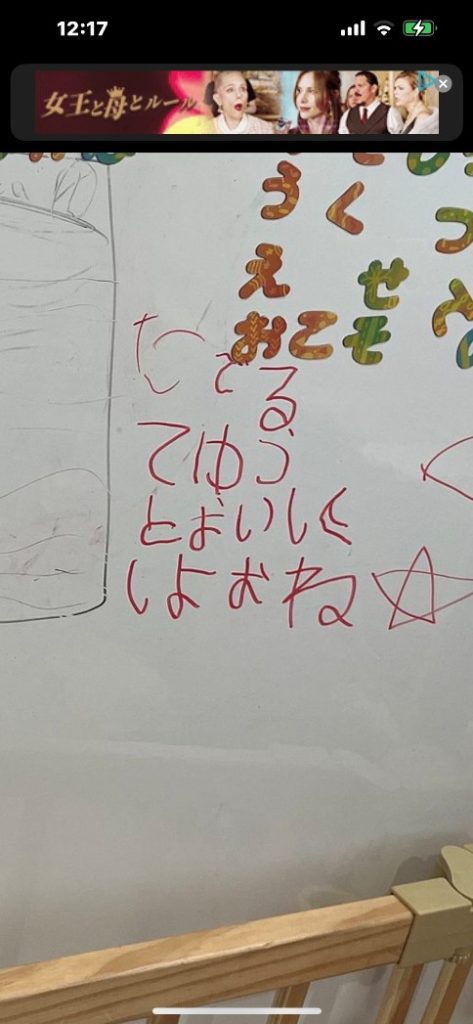 12:17
女王と母とルール
うく
つ
えせ
おこそ
る
てゆう
とおいしく
しよおね☆